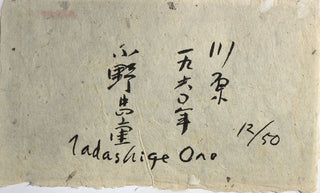 川原
一九六〇年
小野忠重
Tadashige Ono
12/50